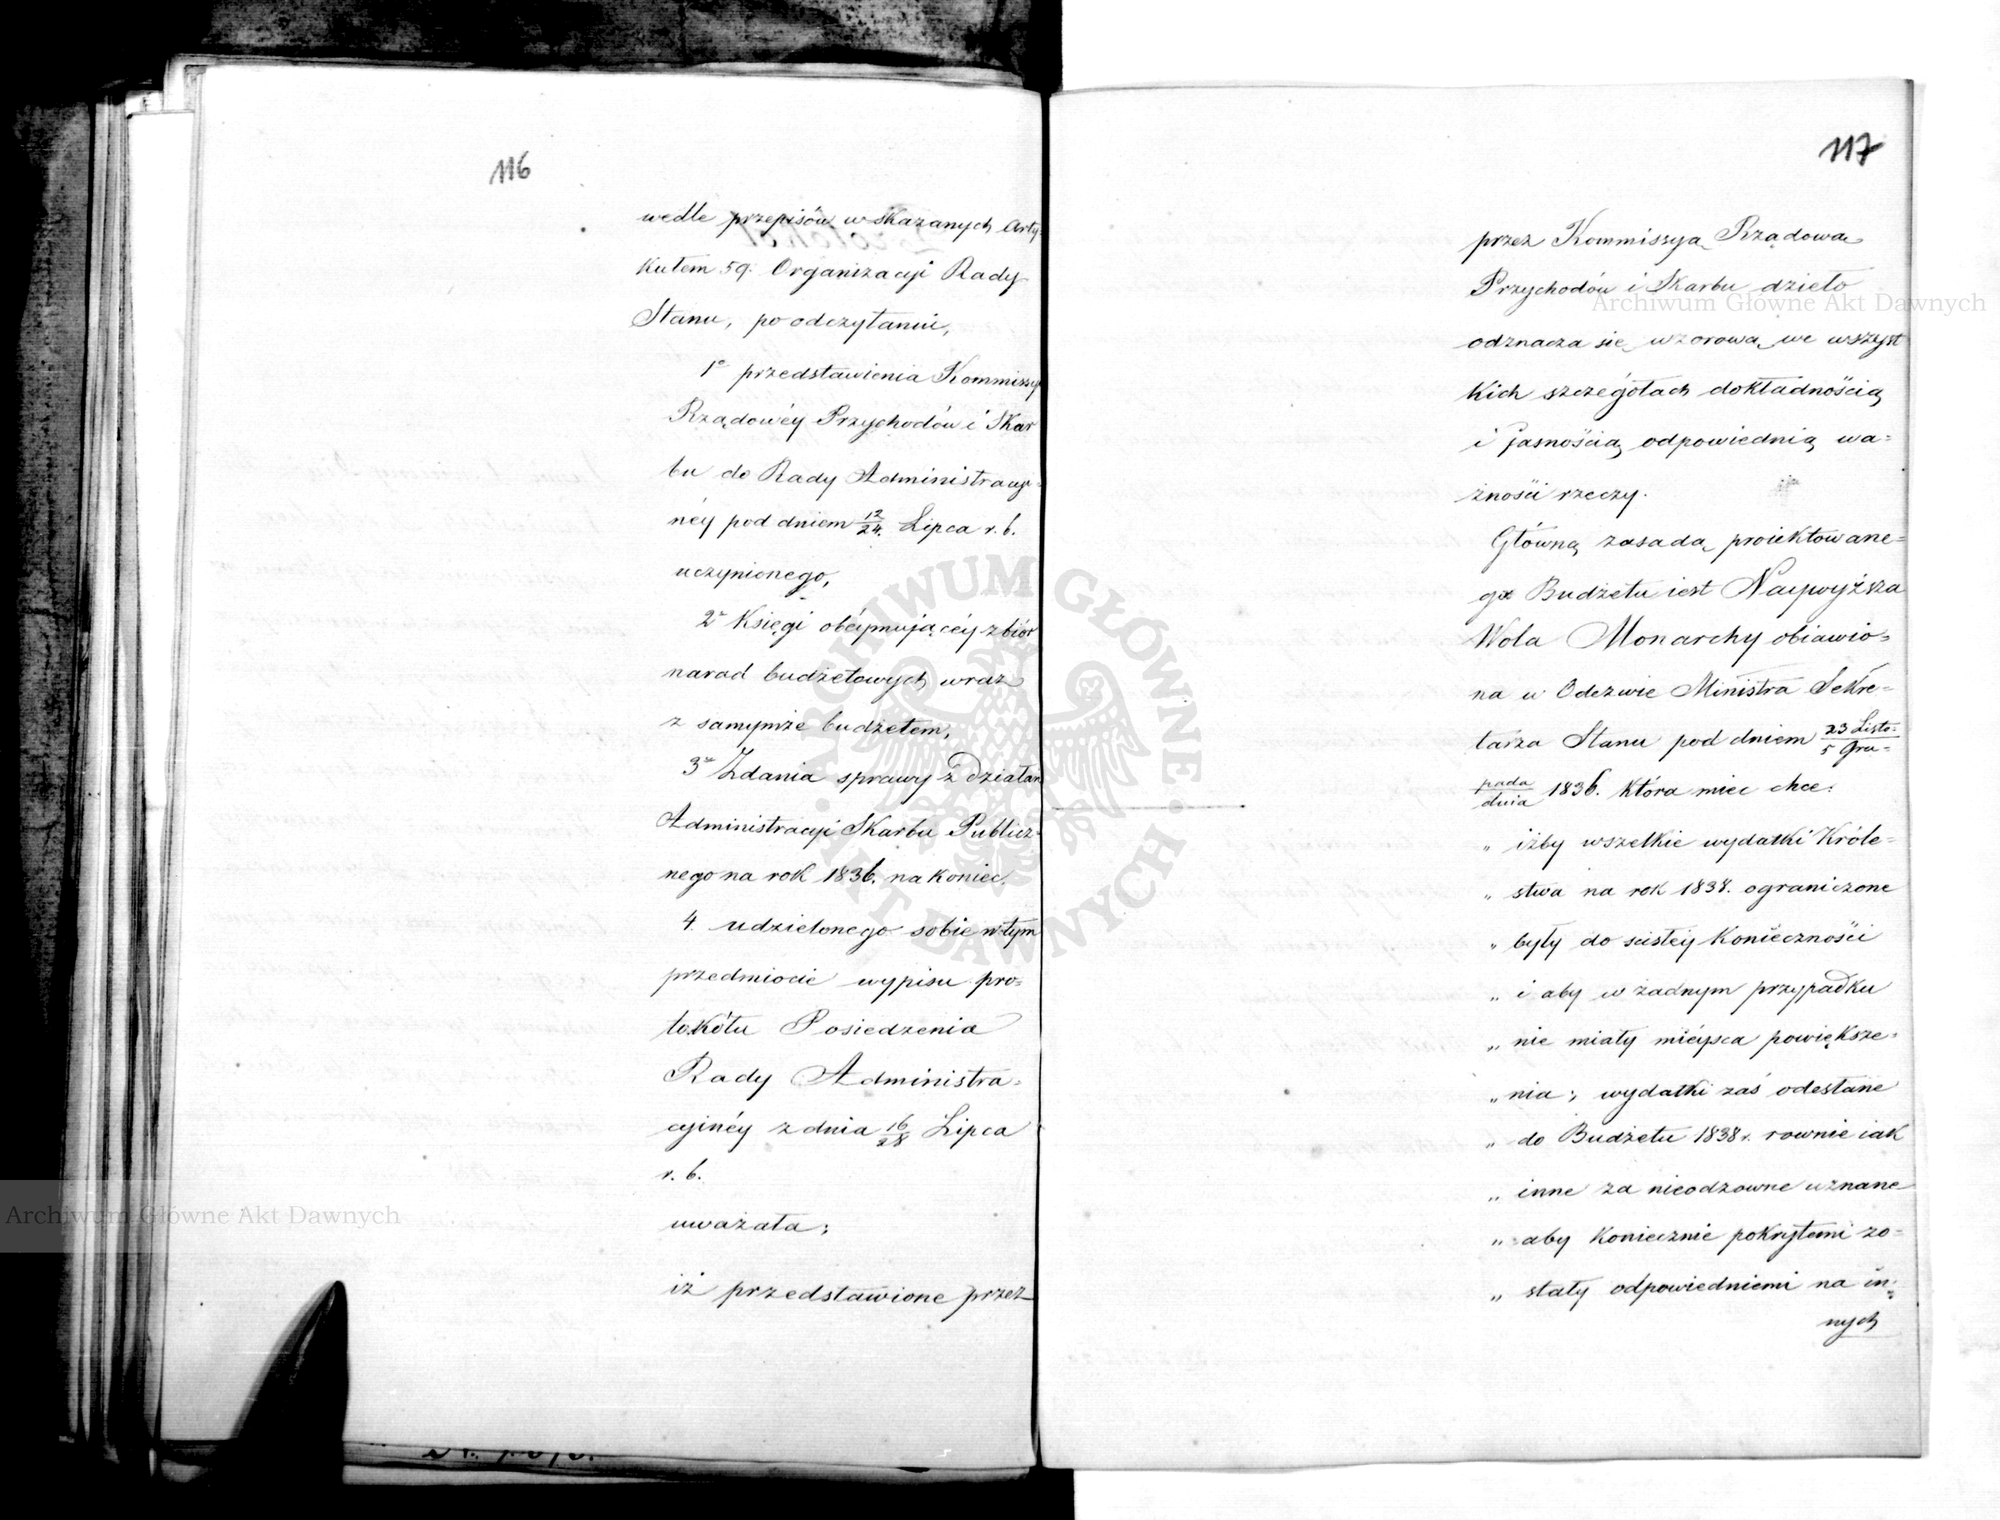 116
wedle przepisów wskazanych Arty-
kułem 59. Organizacyi Rady
Stanu, po odczytaniu,
1° przedstawienia Kommissyi
Rządowéy Przychodów i Skar
bu do Rady Administracyi-
néy pod dniem 12/24. Lipca r. b.
uczynionego,
2° Księgi obéymuiącéy zbiór
narad budżetowych wraz
z samymże budżetem,
3° Zdania sprawy z Działań
Administracyi Skarbu Publicz-
nego na rok 1836. na koniec
4. udzielonego sobie w tym
przedmiocie wypisu pro-
tokółu Posiedzenia
Rady Administra-
cyinéy z dnia 16/28 Lipca
r. b.
uważała;
iż przedstawione przez
117
przez Kommissyą Rządową
Przychodów i Skarbu dzieło
odznacza się wzorową we wszyst
kich szczegółach dokładnością
i jasnością odpowiednią wa-
żności rzeczy.
Główną zasadą proiektowane-
go Budżetu iest Naywyższa
Wola Monarchy obiawio-
na w Odezwie Ministra Sekre-
tarza Stanu pod dniem 23 Listo-/5 Gru-
pada/dnia 1836. która mieć chce:
„ iżby wszelkie wydatki Króle-
„ stwa na rok 1838. ograniczone
„ były do scisłéy konieczności
„ i aby w żadnym przypadku
„ nie miały miéysca powiększe-
„ nia; wydatki zaś odesłane
„ do Budżetu 1838 r. rownie iak
„ inne za nieodzowne uznane
„ aby koniecznie pokrytemi zo-
„ stały odpowiedniemi na in-
nych
Archiwum Główne Akt Dawnych
Archiwum Główne Akt Dawnych
ARCHIWUM GŁÓWNE AKT DAWNYCH